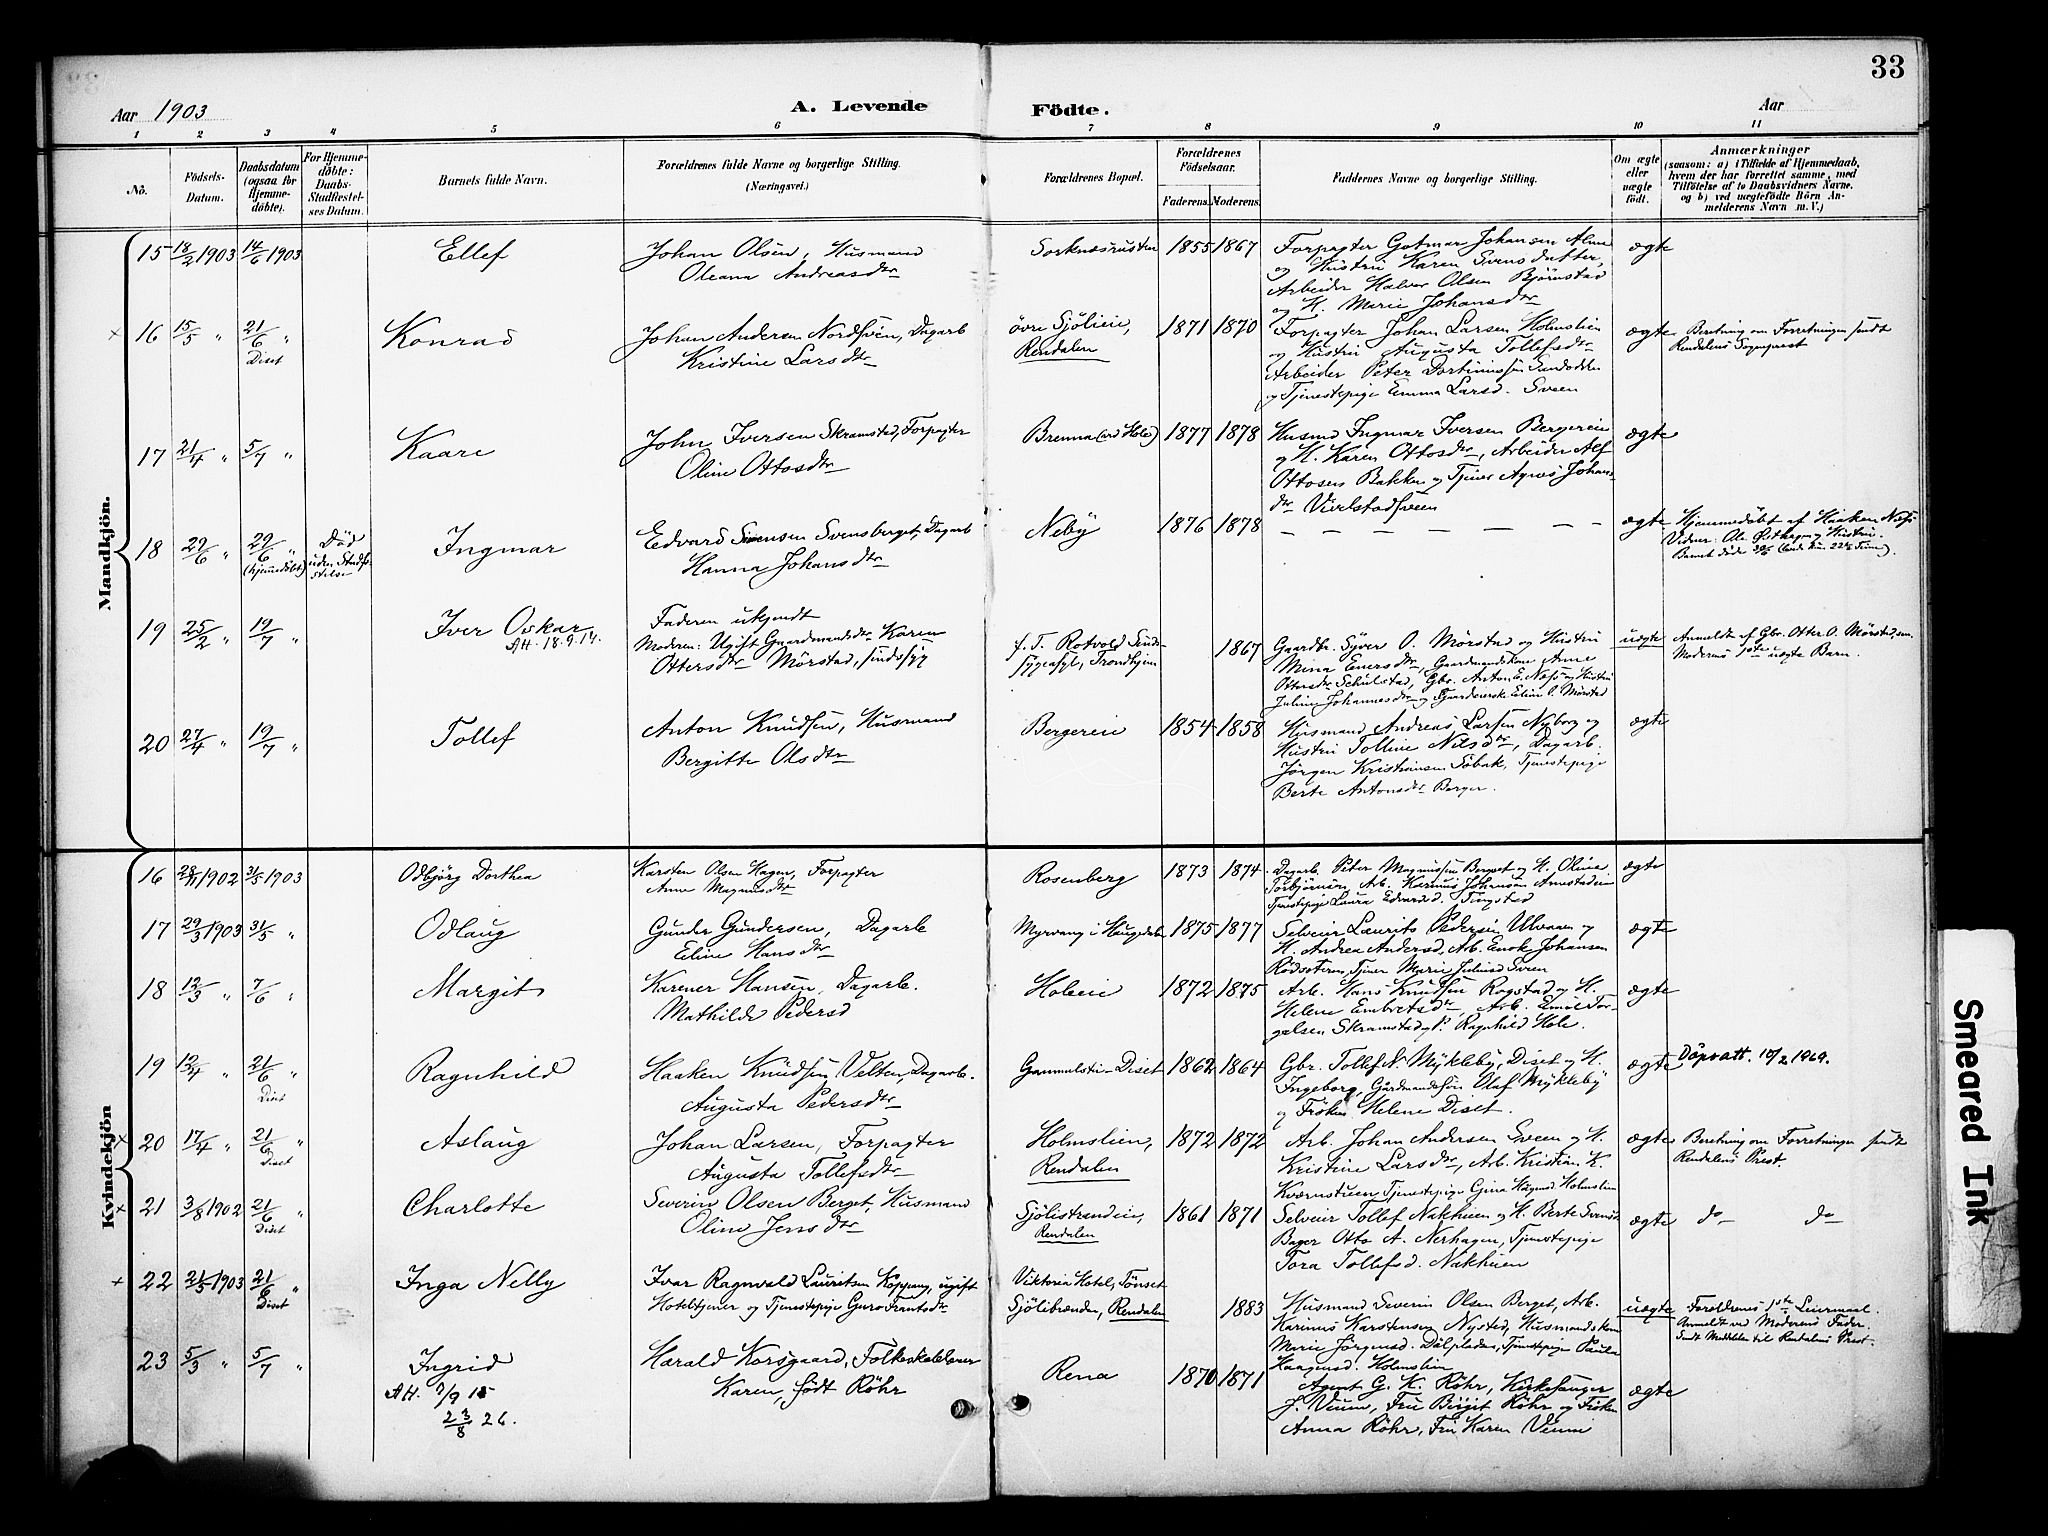 33
Aar 1903
A. Levende Födte.
Aar
1 2 3 4 5 6 7 8 9 10 11
Nô.
Födsels-Datum.
Daabsdatum (ogsaa for Hjemme-döbte).
For Hjemme-döbte: Daabs-Stadfæstel-ses Datum.
Barnets fulde Navn.
Forældrenes fulde Navne og borgerlige Stilling. (Næringsvei.)
Forældrenes Bopæl.
Forældrenes Födselsaar.
Faderens. Moderens.
Faddernes Navne og borgerlige Stilling.
Om ægte eller uægte födt.
Anmærkninger
(saasom: a) i Tilfælde af Hjemmedaab,
hvem der har forrettet samme, med
Tilföielse af to Daabsvidners Navne,
og b) ved uægtefödte Börn An-
melderens Navn m. V.)
Mandkjön.
15 18/2 1903 14/6 1903 Ellef
Johan Olsen, Husmand
Oleana Andreasdtr
Sorknæsrusten 1855 1867
Forpagter Gotmar Johansen Alme
og Hustru Karen Svensdatter,
Arbeider Halvor Olsen Björnstad
og H. Marie Johansdtr
ægte
× 16 15/5 " 21/6 " Diset Konrad
Johan Andersen Nordsveen, Dagarb
Kristine Larsdtr
övre Sjöliein,
Rendalen
1871 1870
Forpagter Johan Larsen Holmslien
og Hustru Augusta Tollefsdtr
Arbeider Peter
og Tjenestepige Emma Larsd. Sveen
ægte
Beretning om Forretningen sendt
Rendalens Sogneprest
17 21/4 " 5/7 " Kaare
John Iversen Skramstad, Forpagter
Oline Ottosdtr
Brenna 1877 1878
Husmd Ingmar Iversen Bergereie
og H. Karen Ottosdtr, Arbeider Alf
Ottosen Bakken og Tjener Agnes Johans-
dtr
ægte
18 29/6 " 29/6 " (hjemmedöbt) Död uden Stadfæstelse Ingmar
Edvard Svensen Svensberget, Dagarb
Hanna Johansdtr
Neby 1876 1878
— — — — —
ægte
Hjemmedöbt af Haaken Næss
Vidner: Ole og Hustru.
19 25/2 " 19/7 " Iver Oskar
Att. 18.9.14.
Faderen ukjendt
Moderen: Ugift Gaardmandsdtr Karen
Ottersdtr Mörstad, sindssyg
f. T. Rotvold Sinds-
sygeasyl, Trondhjem
1867
Gaardbr. Syver O. Mörstad og Hustru
Mina Enersdtr, Gaardmandskone Anne
Ottersdtr Schulstad, Gbr. Anton E. Næss og Hustru
Juline Johannesdtr og Eline O. Mörstad
uægte
Anmeldt af Gbr. Otter O. Mörstad, sen.
Moderens 1ste uægte Barn.
20 27/4 " 19/7 " Tollef
Anton Knudsen, Husmand
Bergitte Olsdtr
Bergereie 1854 1858
Husmand Andreas Larsen Nyborg og
Hustru Tolline Nilsdtr, Dagarb.
Jörgen Kristiansen Söbak, Tjenestepige
Berte Antonsdtr Berger.
ægte
Kvindekjön
16 28/11 1902 31/5 1903 Odbjörg Dorthea
Karsten Olsen Hagen, Forpagter
Anne Magnusdtr
Rosenberg 1873 1874
Dagarb. Peter Magnussen Berget og H. Oline
Torbjörnsen, Arb. Karinus Johansen
Tjenestepige Laura Edvardsd. Tingstad
ægte
17 29/3 1903 31/5 " Odlaug
Gunder Gundersen, Dagarb
Eline Hansdtr
Myrvang i Haugedalen 1875 1877
Selveier Laurits Pedersen Ulvaaen og
H. Andrea Andersd, Arb. Enok Johansen
Rödsæteren, Tjener Marie Juliusd Sveen
ægte
18 12/3 " 7/6 " Margit
Karener Hansen, Dagarb.
Mathilde Pedersd
Holeeie 1872 1875
Arb. Hans Knudsen Rogstad og H.
Helene Embretsdtr, Arb. Emil Tor-
gelsen Skramstad og P. Ragnhild Hole.
ægte
19 12/4 " 21/6 " Diset Ragnhild
Haaken Knudsen Velten, Dagarb.
Augusta Pedersdtr
Gammelstu-Diset 1862 1864
Gbr. Tollef N. Mykleby, Diset og H.
Ingeborg, Gårdmandssön Olaf Mykleby
og Fröken Helene Diset.
ægte
Döpsatt. 10/2 1969.
× 20 17/4 " 21/6 " Diset Aslaug
Johan Larsen, Forpagter
Augusta Tollefsdtr
Holmslien,
Rendalen
1872 1872
Arb. Johan Andersen Sveen og H.
Kristine Larsdtr, Arb. Kristian K.
Kværnstuen Tjenestepige Gina Haagensd Holmslien
ægte
Beretning om Forretningen sendt
Rendalens Prest.
× 21 3/8 1902 21/6 " Diset Charlotte
Severin Olsen Berget, Husmand
Oline Jensdtr
Sjölistrandeie,
Rendalen
1861 1871
Selveier Tollef Nakkuen og H. Berte Svensd.
Bager Otto A. Nerhagen, Tjenestepige
Tora Tollefsd. Nakkuen
ægte
do — do —
× 22 21/5 1903 21/6 " Diset Inga Nelly
Ivar Ragnvald Lauritsen Koppang, ugift
Hoteltjener og Tjenestepige Guro Frantsdtr
Viktoria Hotel, Tönset
Sjölibrænden, Rendalen
1883
Husmand Severin Olsen Berget, Arb.
Karinus Karstensen Nysted, Husmandskone
Marie Jörgensd. Dalpladsen, Tjenestepige Paula
Haagensd. Holmslien
uægte
Forældrenes 1ste Leiermaal.
Anmeldt ved Moderens Fader.
Sendt Meddelelse til Rendalens Prest.
23 5/3 " 5/7 " Ingrid
Att. 7/9 15
23/8 26.
Harald Korsgaard, Folkeskolelærer
Karen, födt Röhr
Rena 1870 1871
Agent G. K. Röhr, Kirkesanger
J. Veum, Fru Birgit Röhr og Fröken
Anna Röhr, Fru Karen Veum
ægte
Smeared Ink